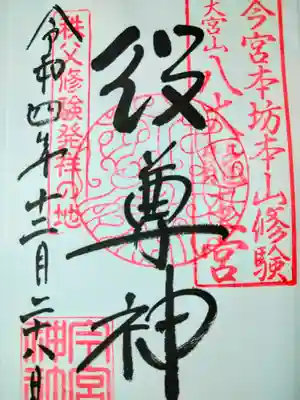 今宮本坊本山修験
大宮山八大龍王宮
役尊神
秩父修験発祥の地
令和四年十二月二十八日
今宮神社